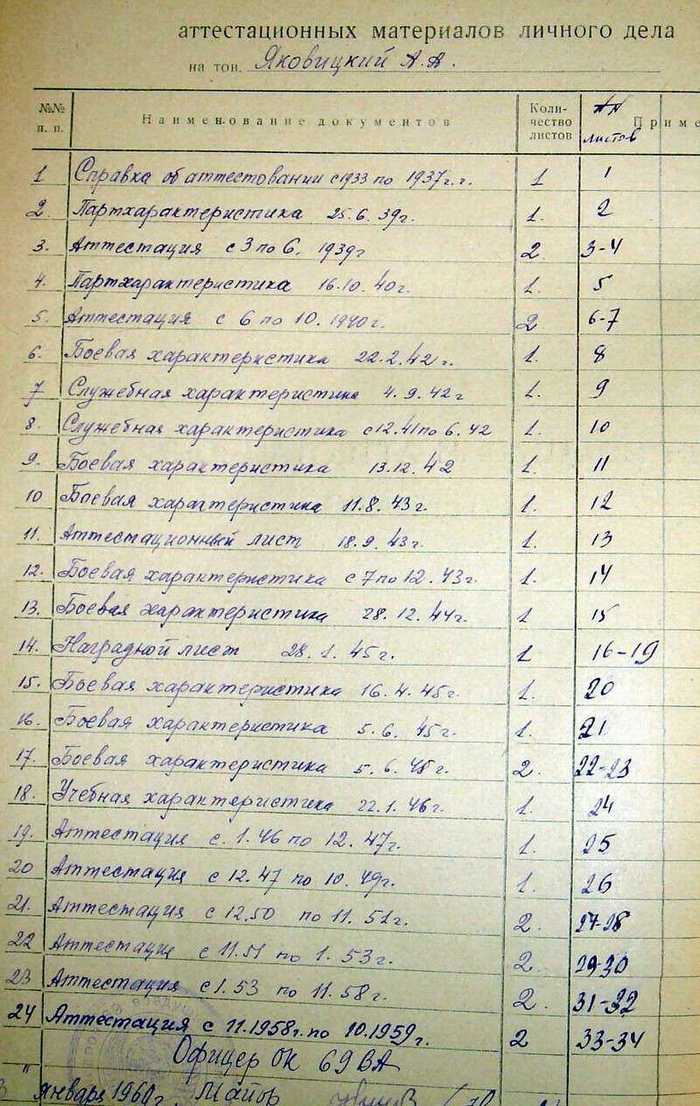 аттестационных материалов личного дела
на тов. Яковицкий А.А.
№№ п. п. Наименование документов Коли-чество листов №№ листов Приме
1 Справка об аттестовании с 1933 по 1937 г.г. 1 1
2. Партхарактеристика 25.6.39г. 1. 2
3. Аттестация с 3 по 6. 1939г 2. 3-4
4. Партхарактеристика 16.10.40г. 1. 5
5. Аттестация с 6 по 10.1940г. 2 6-7
6. Боевая характеристика 22.2.42г. 1. 8
7 Служебная характеристика 4.9.42г 1. 9
8. Служебная характеристика с 12.41 по 6.42 1. 10
9. Боевая характеристика 13.12.42 1. 11
10 Боевая характеристика 11.8.43г. 1. 12
11. Аттестационный лист 18.9.43г. 1. 13
12. Боевая характеристика с 7 по 12.43г. 1. 14
13. Боевая характеристика 28.12.44г. 1 15
14. Наградной лист 28.1.45г. 1 16-19
15. Боевая характеристика 16.4.45г. 1. 20
16. Боевая характеристика 5.6.45г. 1. 21
17. Боевая характеристика 5.6.45г. 2. 22-23
18. Учебная характеристика 22.1.46г. 1. 24
19. Аттестация с. 1.46 по 12.47г. 1. 25
20 Аттестация с 12.47 по 10.49г. 1. 26
21. Аттестация с 12.50 по 11.51г. 2. 27-28
22 Аттестация с 11.51 по 1.53г. 2. 29-30
23 Аттестация с 1.53 по 11.58г. 2. 31-32
24 Аттестация с 11.1958г. по 10.1959г. 2 33-34
Офицер ОК 69 ВА
января 1960г. Майор